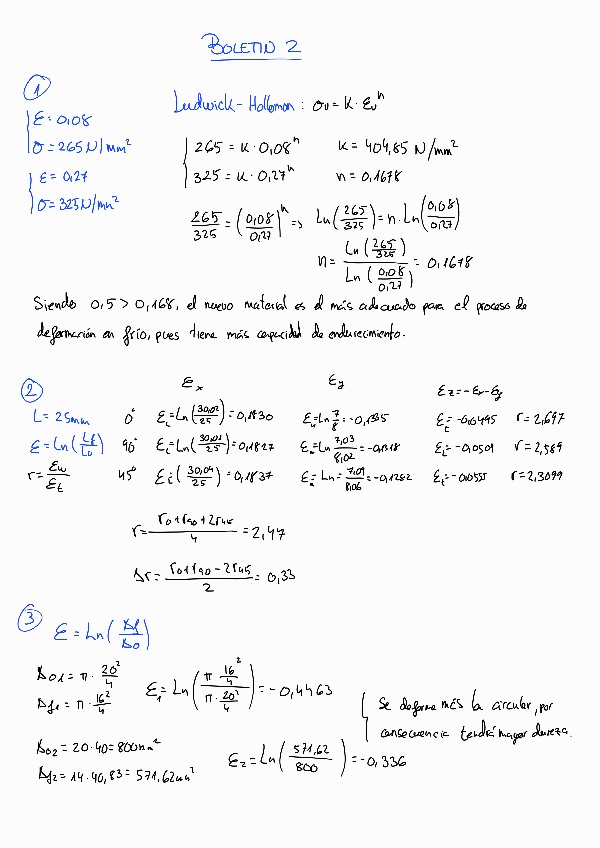 BOLETIN 2
1
Ludwick - Holloman: σv = K · Ev^n
E = 0,08
σ = 265 N/mm²
E = 0,27
σ = 325 N/mm²
265 = K · 0,08^n K = 404,85 N/mm²
325 = K · 0,27^n n = 0,1678
265/325 = (0,08/0,27)^n => Ln(265/325) = n · Ln(0,08/0,27)
n = Ln(265/325) / Ln(0,08/0,27) = 0,1678
Siendo 0,5 > 0,168, el nuevo material es el más adecuado para el proceso de
deformación en frío, pues tiene más capacidad de endurecimiento.
2
Ex Ey Ez = -Ex-Ey
L = 25mm 0° EL = Ln(30,02/25) = 0,1830 Ew = Ln 7/8 = -0,1335 Et = -0,0495 r = 2,697
E = Ln(Lf/Lo) 90° EL = Ln(30,01/25) = 0,1827 Ew = Ln 7,03/8,02 = -0,1318 Et = -0,0509 r = 2,589
r = Ew/Et 45° EL = (30,04/25) = 0,1837 Ew = Ln 7,09/8,06 = -0,1282 Et = -0,0555 r = 2,3099
r = r0+r90+2r45 / 4 = 2,47
Δr = r0+r90-2r45 / 2 = 0,33
3
E = Ln(Af/A0)
A01 = π · 20²/4
Af1 = π · 16²/4
E1 = Ln(π 16²/4 / π · 20²/4) = -0,4463
Se deforma más la circular, por
consecuencia tendrá mayor dureza.
A02 = 20·40 = 800mm²
Af2 = 14·40,83 = 571,62mm²
E2 = Ln(571,62/800) = -0,336